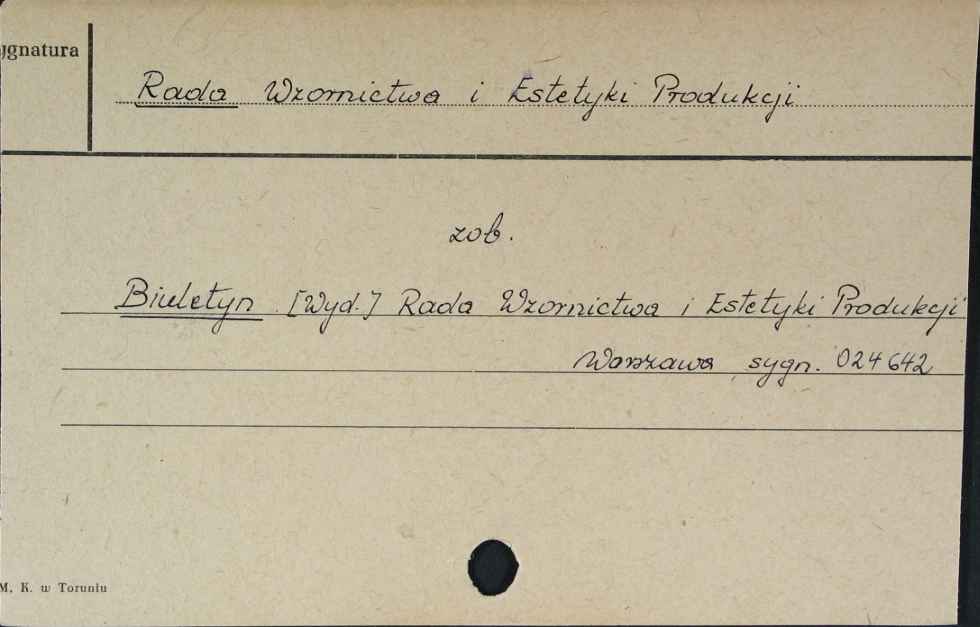 ygnatura
Rada Wzornictwa i Estetyki Produkcji
zob.
Biuletyn [Wyd.] Rada Wzornictwa i Estetyki Produkcji
Warszawa sygn. 024642
M. K. w Toruniu